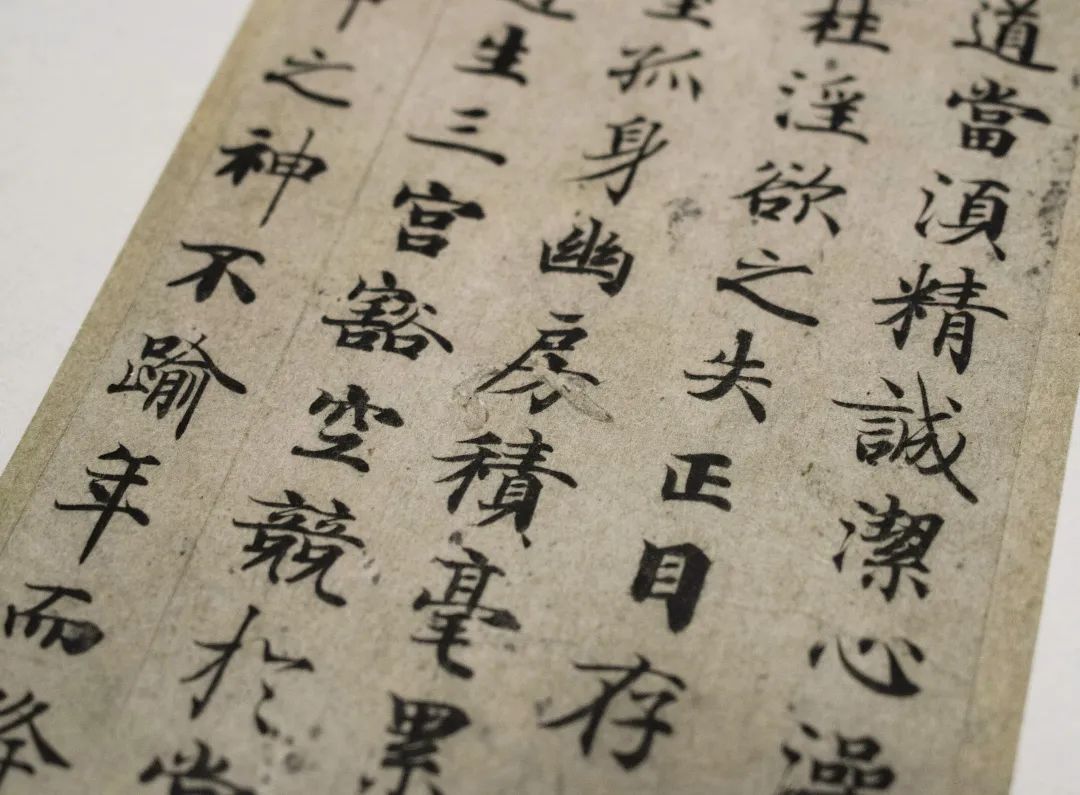 道當湏精誠潔心澡
杜淫欲之失正目存
孤身幽房積毫累
生三宮豁空競於常
之神不踰年而降